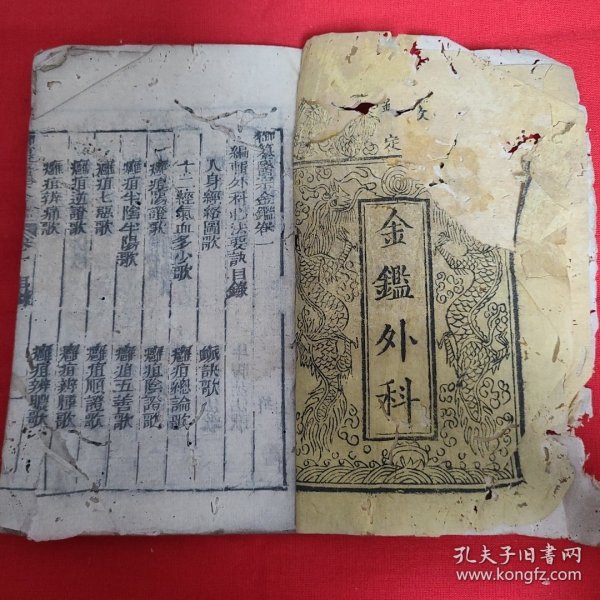 欽
定
金鑑外科
御纂醫宗金鑑卷一
編輯外科心法要訣目錄
人身經絡圖歌
脈訣歌
十二經氣血多少歌
癰疽總論歌
癰疽陽證歌
癰疽陰證歌
癰疽半陰半陽歌
癰疽五善歌
癰疽七惡歌
癰疽順證歌
癰疽逆證歌
癰疽辨腫歌
癰疽辨痛歌
癰疽辨膿歌
目錄
孔夫子旧书网
www.kongfz.com